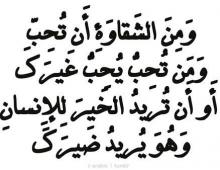 وَمِنَ الشَقاوَةِ أَن تُحِبَّ
وَمَن تُحِبُّ يُحِبُّ غَيرَكَ
أَو أَن تُريدَ الخَيرَ لِلإِنسانِ
وَهُوَ يُريدُ ضَيرَكَ